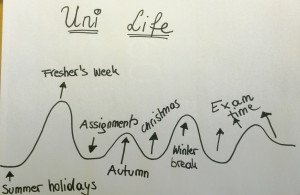 Uni Life
Fresher's Week
Assignments
Christmas
Exam
time
Winter
break
Autumn
Summer holidays